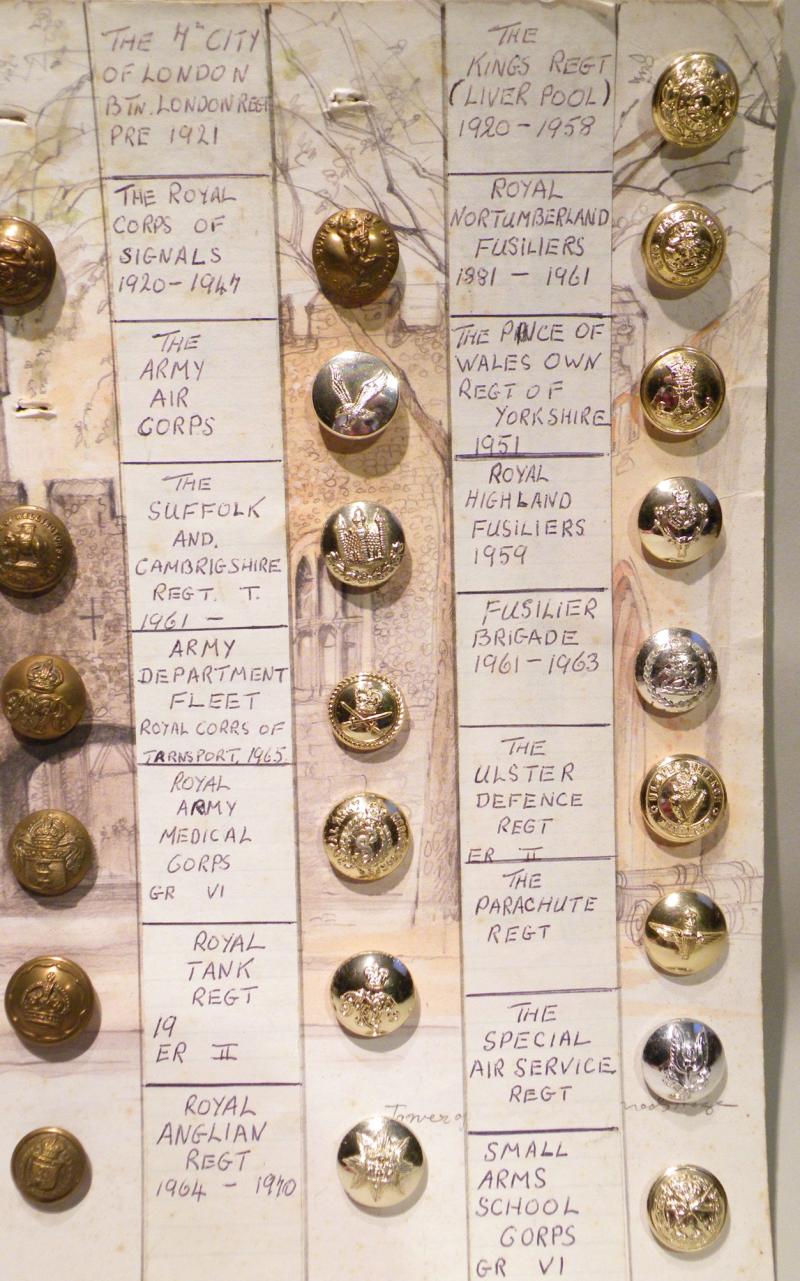 THE 4TH CITY
OF LONDON
BTN. LONDON REGT
PRE 1921
THE ROYAL
CORPS OF
SIGNALS
1920-1947
THE
ARMY
AIR
CORPS
THE
SUFFOLK
AND.
CAMBRIGSHIRE
REGT. T.
1961 -
ARMY
DEPARTMENT
FLEET
ROYAL CORRS OF
TARNSPORT, 1965.
ROYAL
ARMY
MEDICAL
CORPS
GR VI
ROYAL
TANK
REGT
19
ER II
ROYAL
ANGLIAN
REGT
1964 - 1970
THE
KINGS REGT
(LIVER POOL)
1920-1958
ROYAL
NORTUMBERLAND
FUSILIERS
1881 - 1961
THE PRNCE OF
WALES OWN
REGT OF
YORKSHIRE
1951
ROYAL
HIGHLAND
FUSILIERS
1959
FUSILIER
BRIGADE
1961-1963
THE
ULSTER
DEFENCE
REGT
ER II
THE
PARACHUTE
REGT
THE
SPECIAL
AIR SERVICE
REGT
SMALL
ARMS
SCHOOL
CORPS
GR VI
Tower of